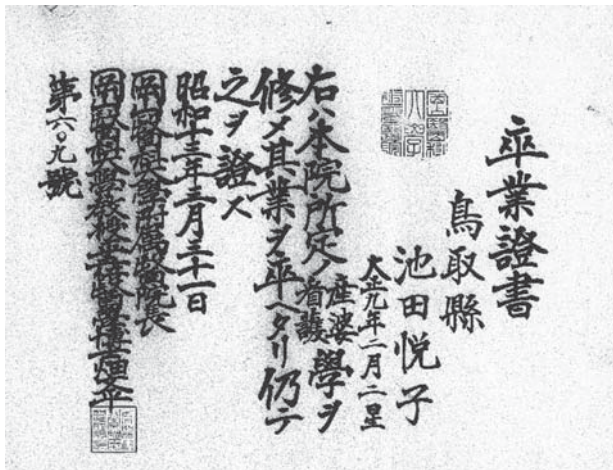 卒業證書
鳥取縣
池田悦子
大正九年二月二日生
右ハ本院所定ノ産婆看護學ヲ
修メ其業ヲ卒ヘタリ仍テ
之ヲ證ス
昭和十三年三月三十一日
岡山醫科大學附属醫院長
岡山醫科大學教授 醫學博士
第六〇九號